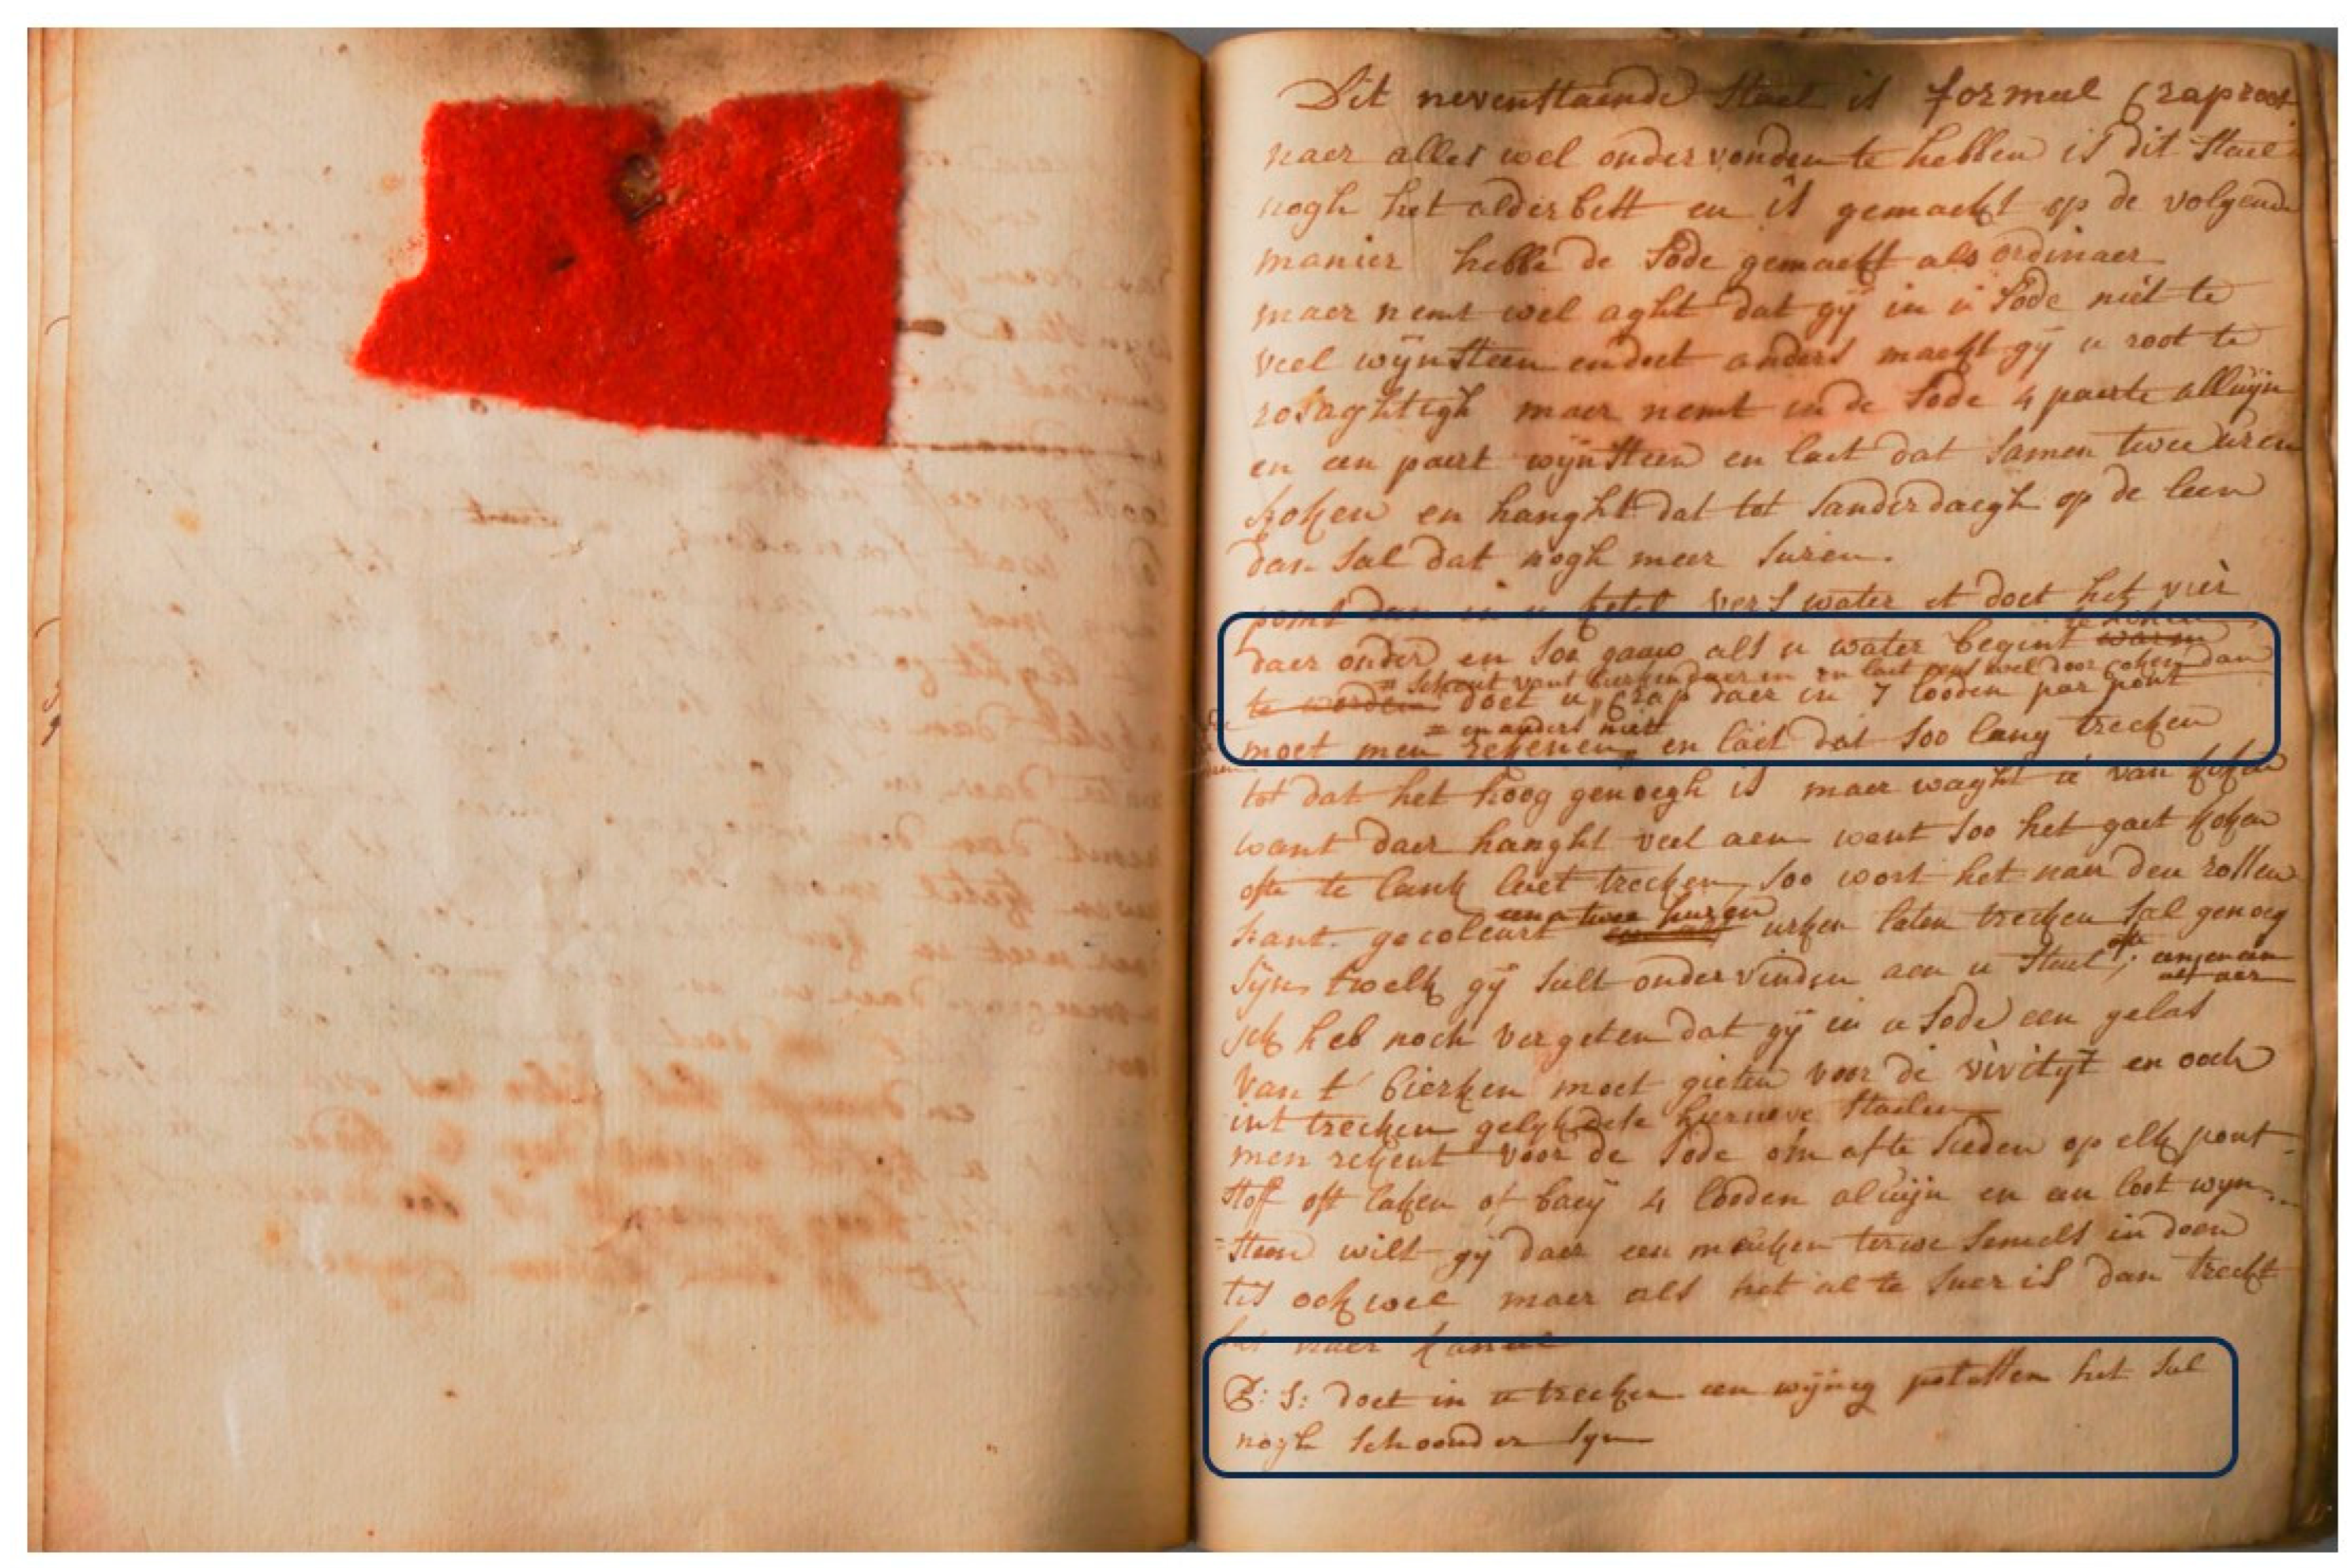 Dit nevenstaende Stael is formeel Craproot
naer alles wel ondervonden te hebben is dit Stael
nogh het alderbest en is gemaekt op de volgende
manier hebbe de Sode gemaekt als ordinaer
maer nemt wel aght dat gÿ in u Sode niet te
veel wÿnsteen en doet anders maekt gÿ u root te
rosaghtigh maer nemt in de Sode 4 paerte alluÿn
en een paert wÿnsteen en laet dat samen twee uren
koken en hanght dat tot Sanderdaegh op de leen
dan sal dat nogh meer suren.
pomt dan in u ketel vers water et doet het vier
daer onder en soo gauw als u water begint warm te koken
te worden doet u Crap daer in 7 looden par pont
= schout vant bierken daer in en laet eens wel door coken dan
moet men rekenen = en anders niet en laet dat soo lang trecken
tot dat het hoog genoegh is maer waght u van koken
want daer hanght veel aen want soo het gaet koken
ofte te lank laet trecken soo wort het naer den rossen
kant gecoleurt een a twee huren urken laten trecken sal genoeg
sÿn twelk gÿ sult ondervinden aen u Stael
ick heb noch vergeten dat gÿ in u Sode een gelas
van t' bierken moet gieten voor de viviteÿt en oock
int trecken gelyk dese hierneve staelen
men rekent voor de Sode om af te sieden op elk pont
stoff oft laken of baeÿ 4 looden aluijn en een loot wyn
=steen wilt gÿ daer een meuken terwe semels in doen
tis ook wel maer als het al te suer is dan treckt
het naer kaneel
P: S: doet in u trecken een wÿnig potassen het sal
nogh schoonder syn